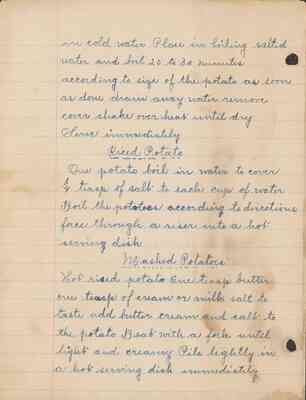 in cold water Place in boiling salted
water and boil 20 to 30 minutes
according to size of the potato as soon
as done drain away water remove
cover shake over heat until dry
Serve immediately
Riced Potato
One potato boil in water to cover
½ teasp of salt to each cup of water
Boil the potatoes according to directions
force through a riser into a hot
serving dish
Mashed Potatoes
Hot rised potato one teasp butter
one teasp of cream or milk salt to
taste add butter cream and salt to
the potato Beat with a fork until
light and creamy Pile lightly in
a hot serving dish immediately